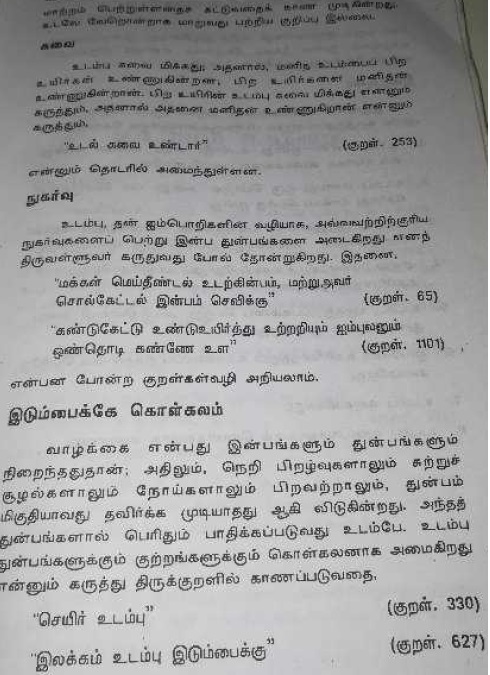 மாற்றம் பெற்றுள்ளதைச் சுட்டுவதைக் காண முடிகின்றது.
உடலே வேறொன்றாக மாறுவது பற்றிய குறிப்பு இல்லை.
சுவை
உடம்பு சுவை மிக்கது; அதனால், மனித உடம்பைப் பிற
உயிர்கள் உண்ணுகின்றன; பிற உயிர்களை மனிதன்
உண்ணுகின்றான். பிற உயிரின் உடம்பு சுவை மிக்கது என்னும்
கருத்தும், அதனால் அதனை மனிதன் உண்ணுகிறான் என்னும்
கருத்தும்,
“உடல் சுவை உண்டார்” (குறள். 253)
என்னும் தொடரில் அமைந்துள்ளன.
நுகர்வு
உடம்பு, தன் ஐம்பொறிகளின் வழியாக, அவ்வவற்றிற்குரிய
நுகர்வுகளைப் பெற்று இன்ப துன்பங்களை அடைகிறது எனத்
திருவள்ளுவர் கருதுவது போல் தோன்றுகிறது. இதனை,
“மக்கள் மெய்தீண்டல் உடற்கின்பம், மற்றுஅவர்
சொல்கேட்டல் இன்பம் செவிக்கு” (குறள். 65)
“கண்டுகேட்டு உண்டுஉயிர்த்து உற்றறியும் ஐம்புலனும்
ஒண்தொடி கண்ணே உள” (குறள். 1101)
என்பன போன்ற குறள்கள்வழி அறியலாம்.
இடும்பைக்கே கொள்கலம்
வாழ்க்கை என்பது இன்பங்களும் துன்பங்களும்
நிறைந்ததுதான்; அதிலும், நெறி பிறழ்வுகளாலும் சுற்றுச்
சூழல்களாலும் நோய்களாலும் பிறவற்றாலும், துன்பம்
மிகுதியாவது தவிர்க்க முடியாதது ஆகி விடுகின்றது. அந்தத்
துன்பங்களால் பெரிதும் பாதிக்கப்படுவது உடம்பே. உடம்பு
துன்பங்களுக்கும் குற்றங்களுக்கும் கொள்கலனாக அமைகிறது
என்னும் கருத்து திருக்குறளில் காணப்படுவதை,
“செயிர் உடம்பு” (குறள். 330)
“இலக்கம் உடம்பு இடும்பைக்கு” (குறள். 627)